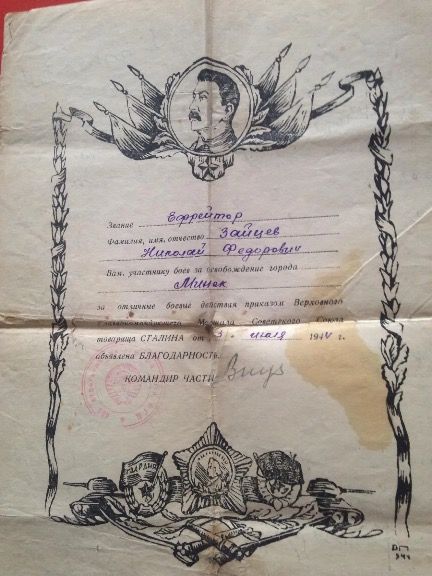 Звание Ефрейтор
Фамилия, имя, отчество Зайцев
Николай Федорович
Вам, участнику боев за освобождение города
Минск
за отличные боевые действия приказом Верховного
Главнокомандующего Маршала Советского Союза
товарища СТАЛИНА от 3. июля 1944 г.
объявлена БЛАГОДАРНОСТЬ.
КОМАНДИР ЧАСТИ
ГВАРДИЯ